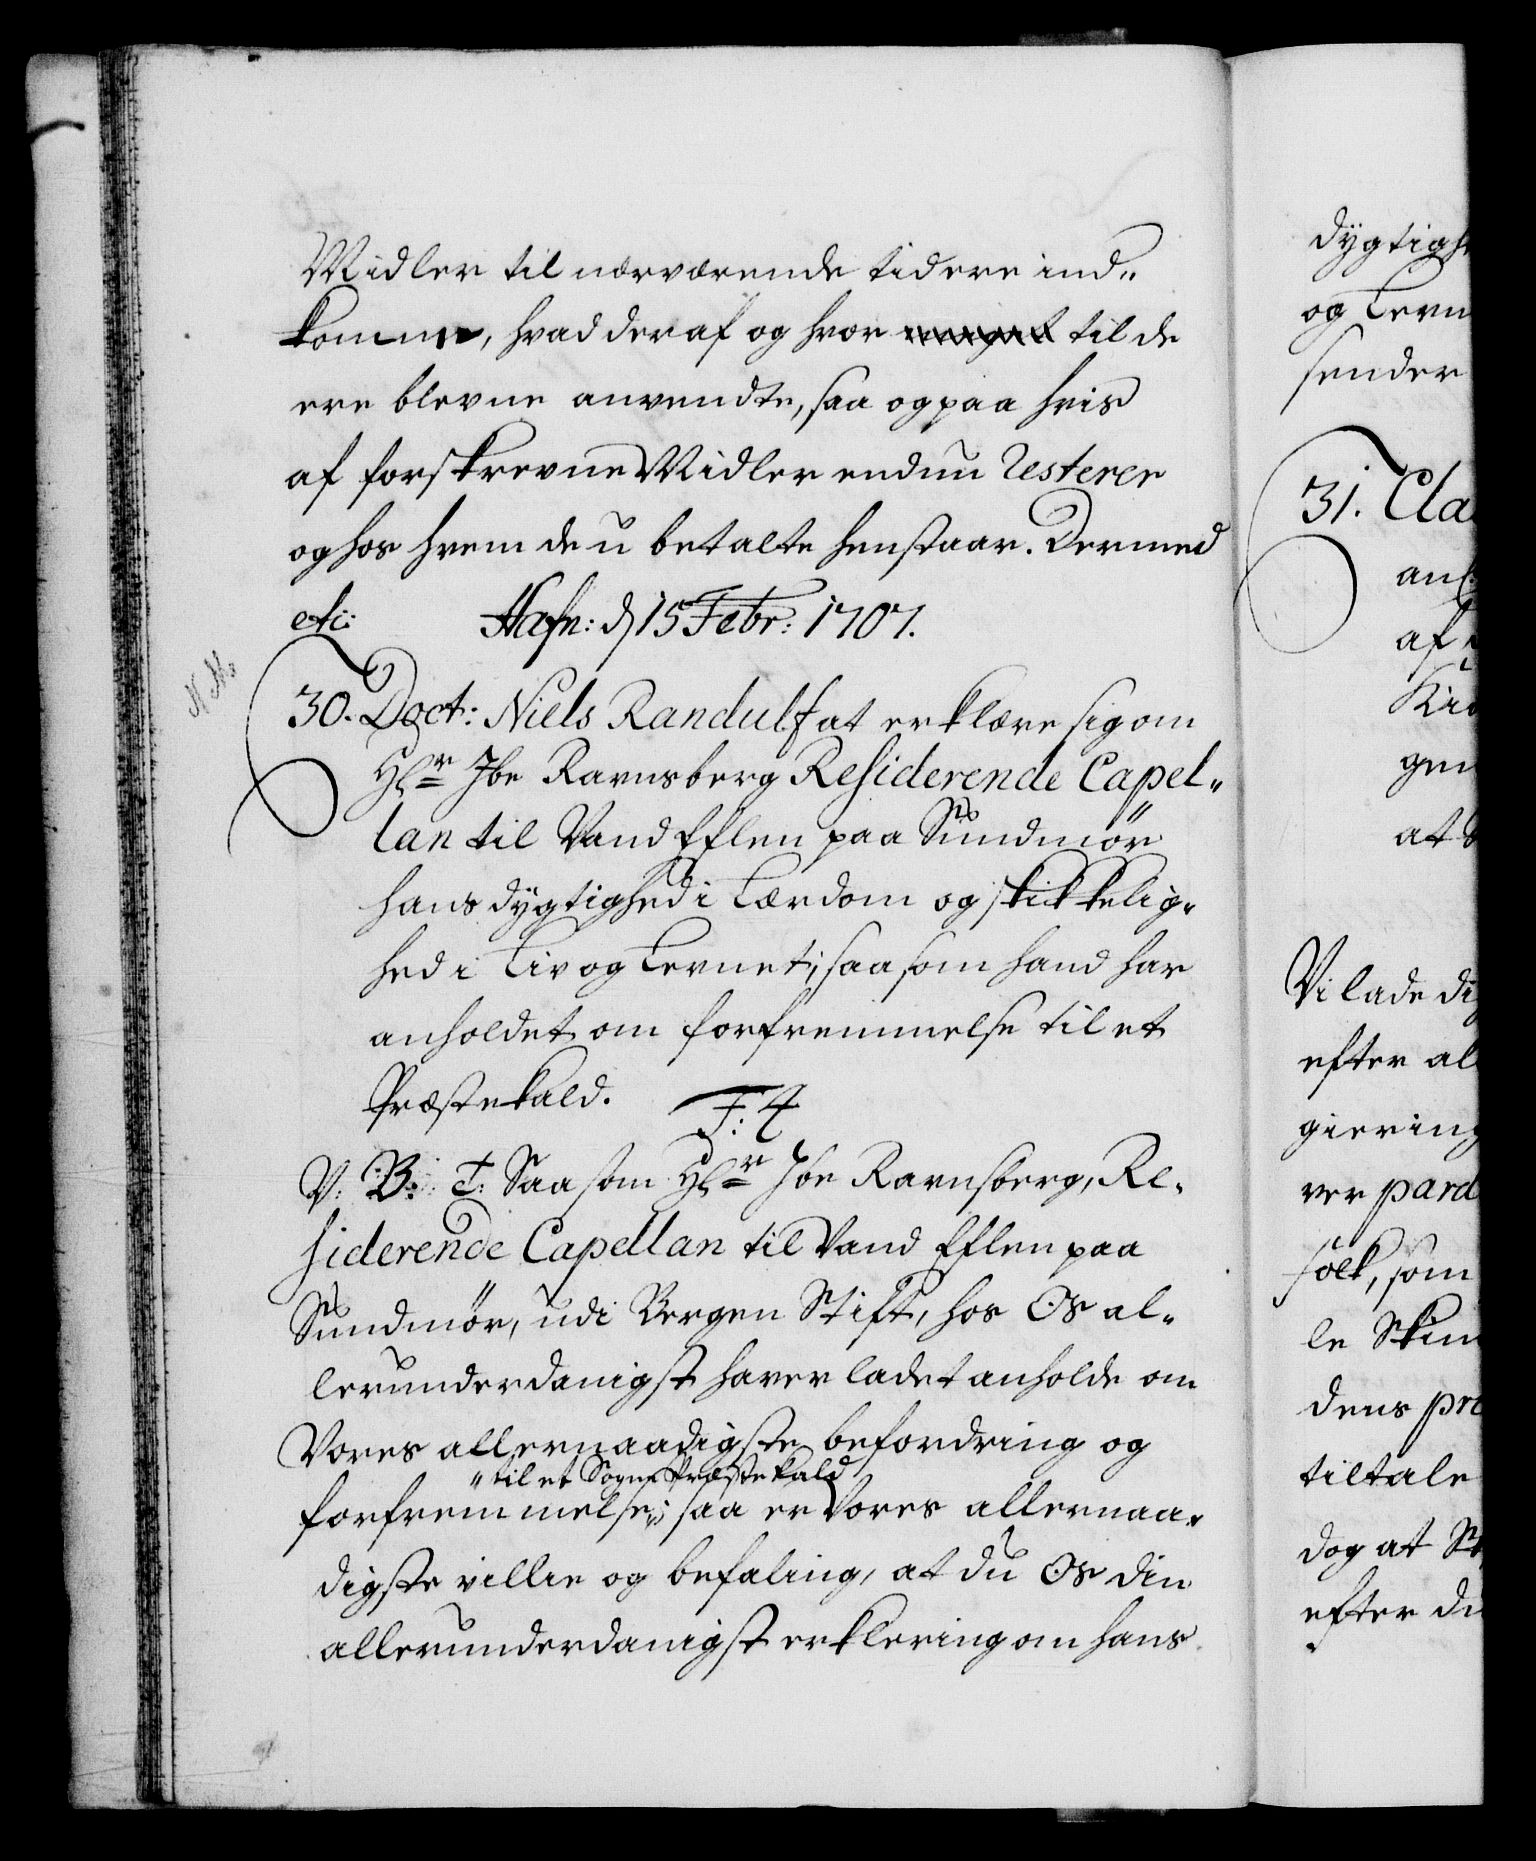 Midler til nærværende tid ere ind„
komne, hvad deraf og hvor til de
ere blevne anvendte, saa og paa hvis
af forskrevne Midler endnu Resterer
og hos hvem de u betalte henstaar. Dermed
etc: Hafn: d 15 Febr: 1707.
N. M.
30. Doct: Niels Randulf at erklære sig om
Hr Ibe Ravnsberg Residerende Capel„
lan til Vand Elflen paa Sundmør
hans dygtighed i Lærdom og skikkelig„
hed i Liv og Levnet; saasom hand har
anholdet om forfremmelse til et
Præstekald.
F: 4
V: B: T: Saasom Hr Ibe Ravnsberg, Re„
siderende Capellan til Vand Elflen paa
Sundmør, udi Bergen Stift, hos Os al„
lerunderdanigst haver ladet anholde om
Vores allernaadigste befordring og
„til et Sogne Præstekald
forfremmelse„; saa er Vores allernaa„
digste villie og befaling, at du Os din
allerunderdanigst erklering om hans
dygtigh
og Levn
sender
31. Cla
an
af
Kir
gen
at
Vi lade di
efter al
giering
ver pard
folk, som
le Skin
dens pro
tiltale
dog at St
efter du